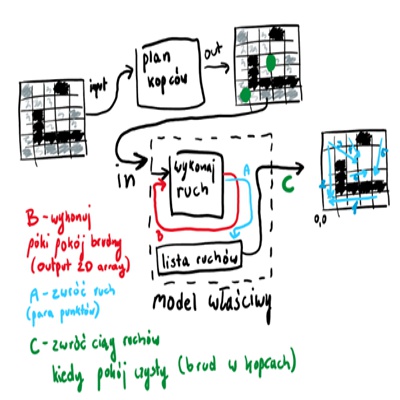 input
plan
kopców
out
in
wykonaj
ruch
A
B
C
lista ruchów
model właściwy
0,0
B - wykonuj
póki pokój brudny
(output 2D array)
A - zwróć ruch
(para punktów)
C - zwróć ciąg ruchów
kiedy pokój czysty (brud w kopcach)